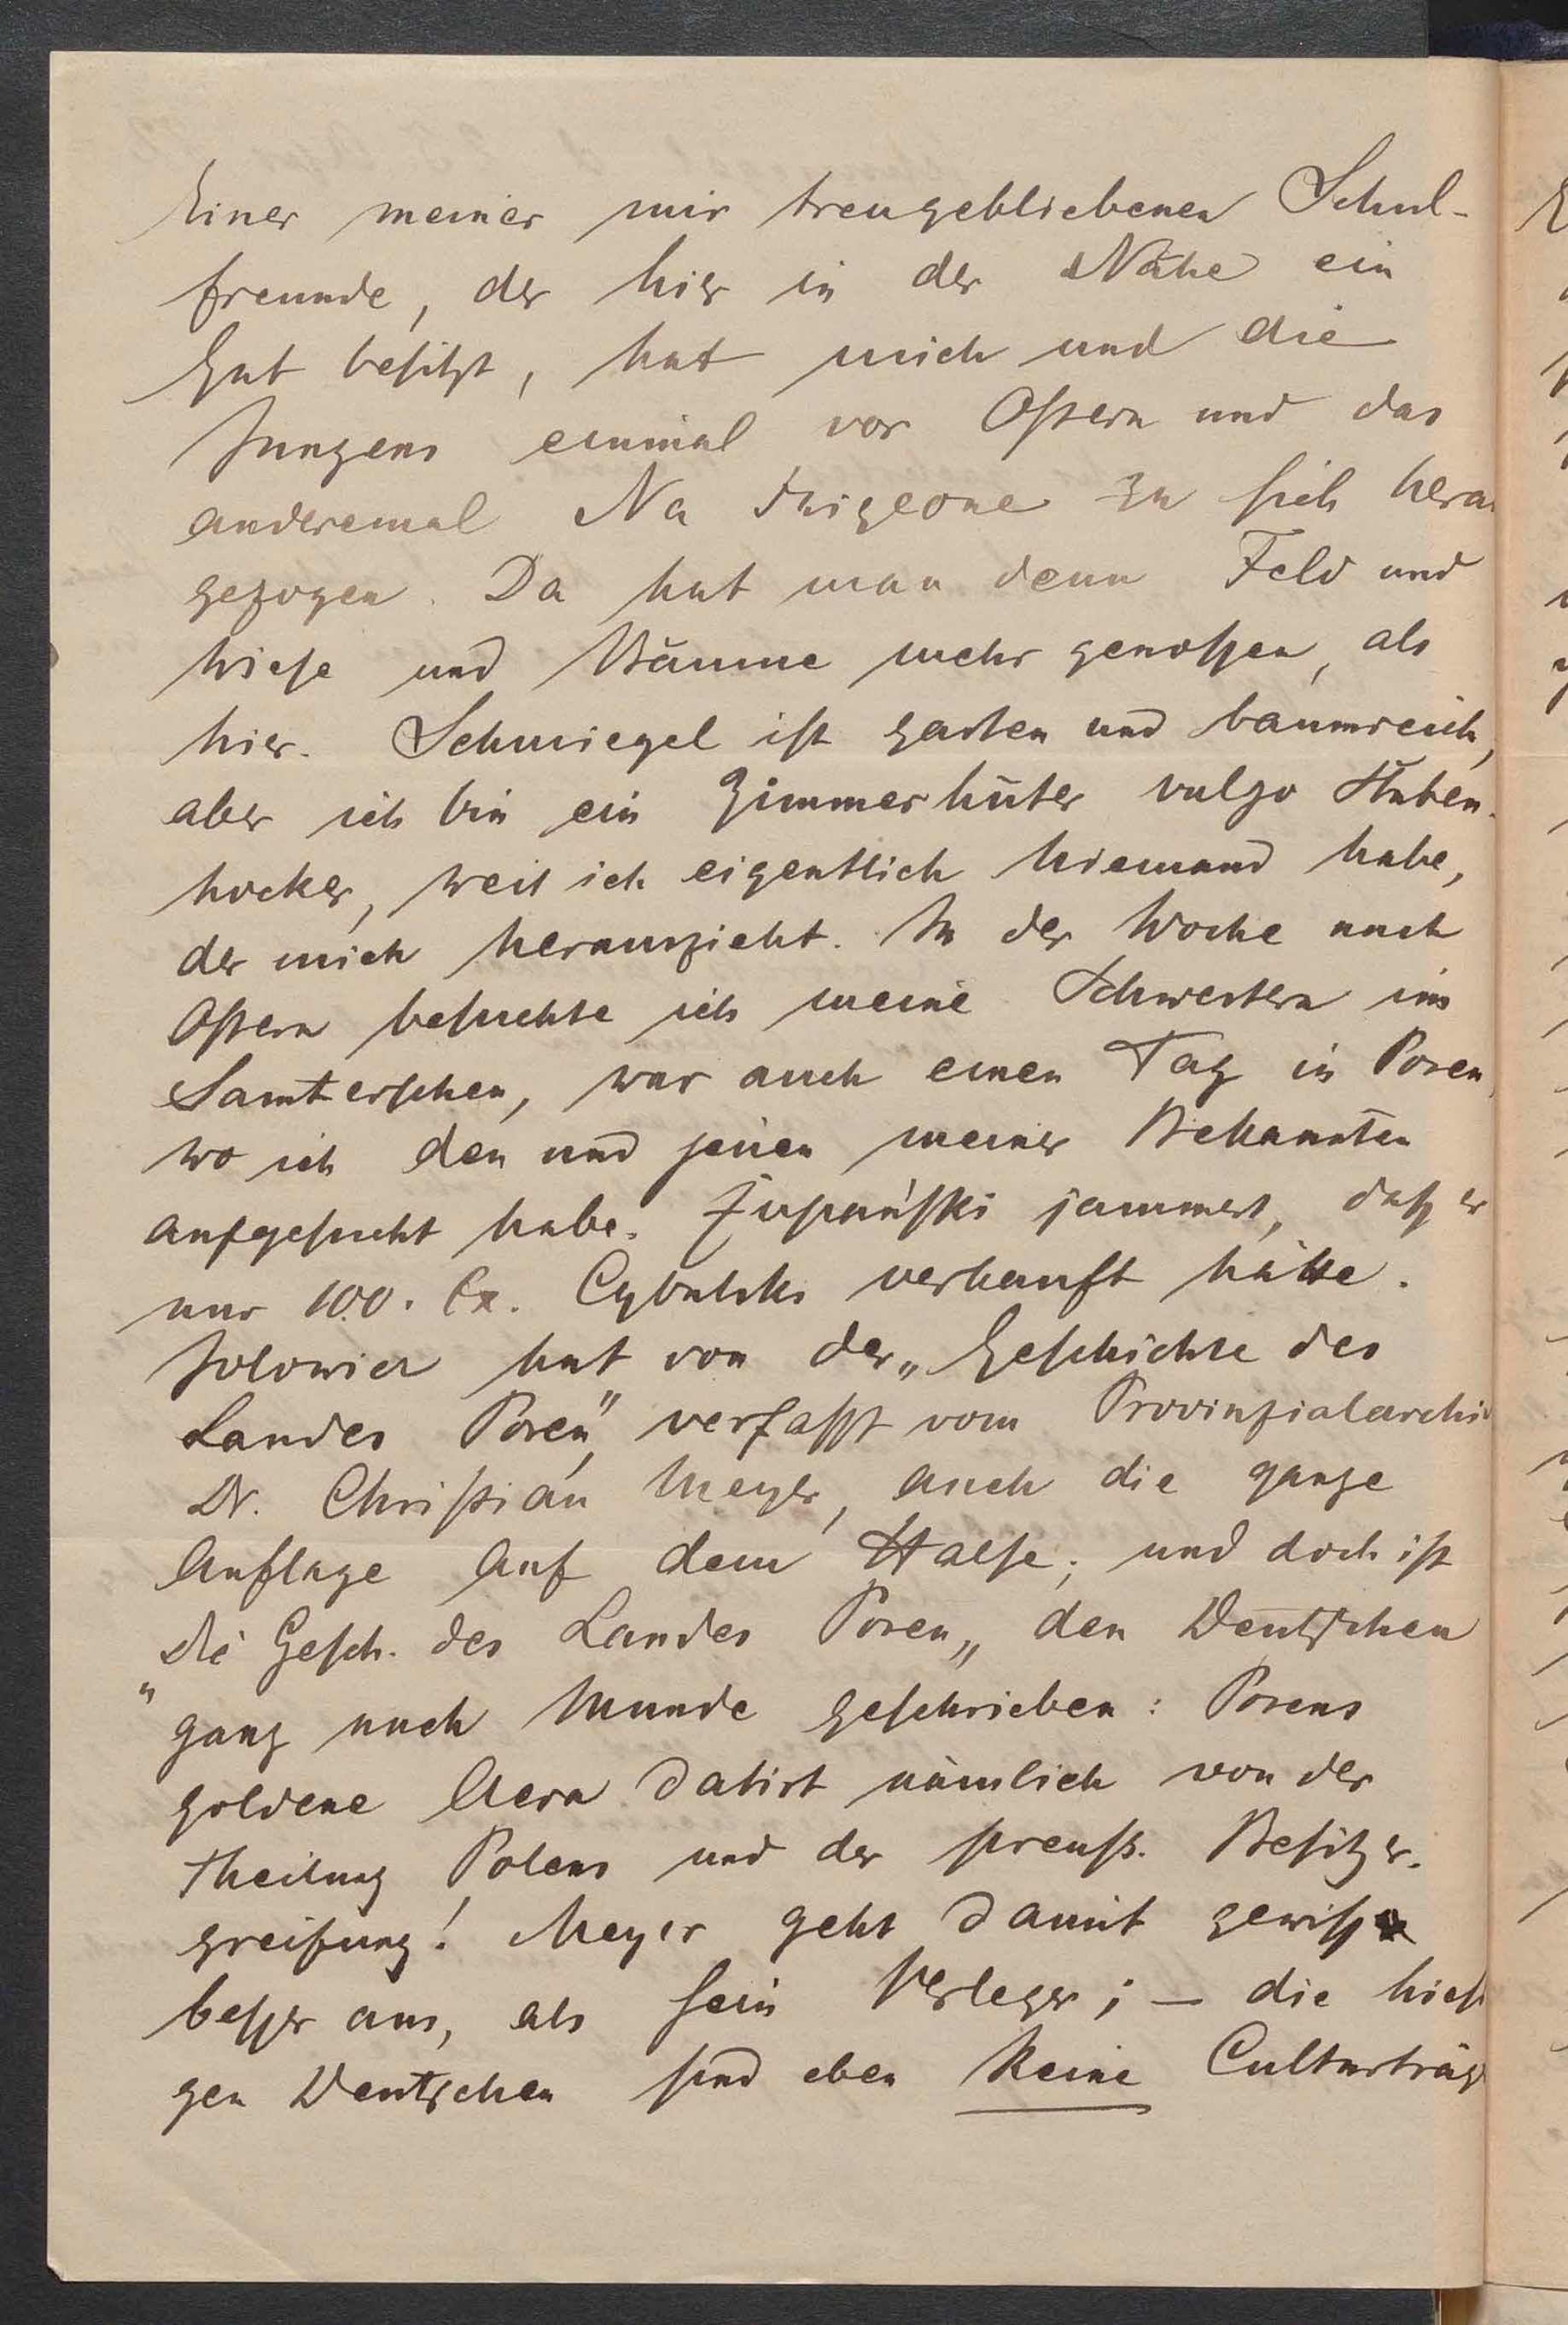 Einer meiner mir treugebliebenen Schul-
freunde, der hier in der Nähe ein
Gut besitzt, hat mich und die
Jungens einmal vor Ostern und das
anderemal Na święcone zu sich hera
gezogen. Da hat man denn Feld und
Wiese und Bäume mehr genossen, als
hier. Schmiegel ist garten und baumreich,
aber ich bin ein Zimmerhüter vulgo Stuben-
hocker, weil ich eigentlich Niemand habe,
der mich herauszieht. In der Woche nach
Ostern besuchte ich meine Schwestern im
Samterschen, war auch einen Tag in Posen,
wo ich den und jenen meiner Bekannten
aufgesucht habe. Żupański jammert, daß er
nur 100. Ex. Cybulski verkauft hätte.
Jolowicz hat von der „Geschichte des
Landes Posen", verfasst vom Provinzialarchiv
Dr. Christian Meyer, auch die ganze
Auflage auf dem Halse; und doch ist
„Die Gesch. des Landes Posen„ den Deutschen
ganz nach Munde geschrieben: Posens
goldene Aera datirt nämlich von der
Theilung Polens und der preuß. Besitzer-
greifung! Meyer geht damit gewiß
besser aus, als sein Verleger; — die hiesi
gen Deutschen sind eben keine Culturträg